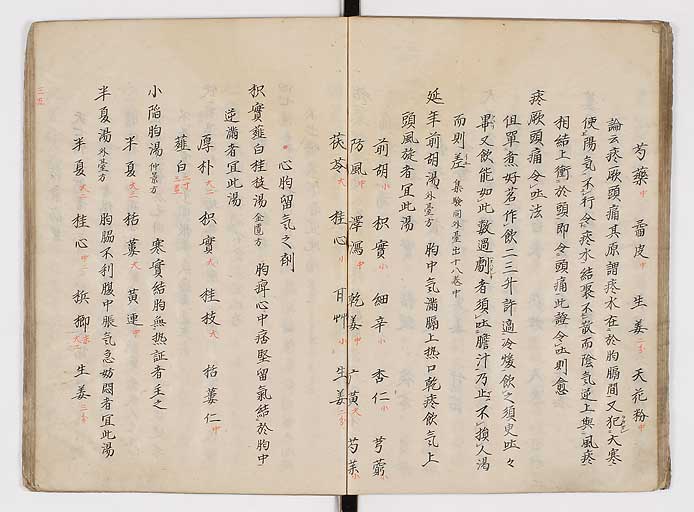 芍藥中 番皮 生姜二分 天花粉中
論云痰厥頭痛其原謂痰水在於胸膈間又犯大寒
使陽氣不行令痰水結聚不散而陰氣逆上與風痰
相結上衝於頭即令頭痛此證令吐則愈
痰厥頭痛令吐法
但單煮好茗作飲二三升許適冷煖飲之須臾吐々
畢又飲能如此數過劇者須吐膽汁乃止不損人渴
而則差 集驗同外臺出十八卷中
延年前胡湯外臺方 胸中氣滿膈上热口乾痰飲氣上
頭風旋者宜此湯
前胡小 枳實小 細辛小 杏仁小 芎藭
防風中 澤瀉中 乾姜中 广黄大 芍藥小
茯苓大 桂心小 甘艸小 生姜二分
心胸留气之剤
枳實薤白桂枝湯金匱方 胸痺心中痞堅留氣結於胸中
逆滿者宜此湯
厚朴大二 枳實大 桂枝大 栝蔞仁中
薤白二寸三莖
小陷胸湯仲景方 寒實結胸無热証者主之
半夏大二 栝蔞大 黄連中
半夏湯外臺方 胸脇不利腹中脹気急妨悶者宜此湯
半夏大二 桂心中二 檳榔大二 生姜二分
三五